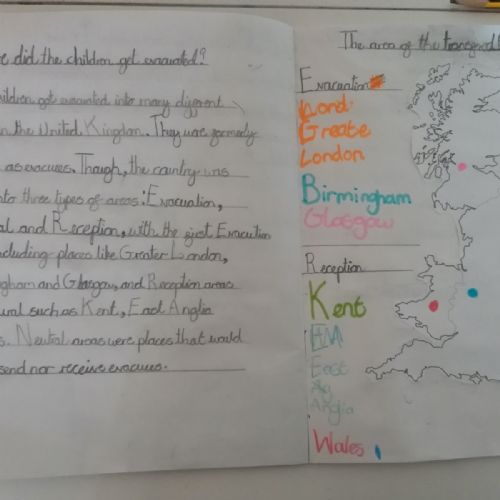 e did the children get evacuated?
children got evacuated into many different
n the United Kingdom. They were formerly
as evacuees. Though, the country was
into three types of areas: Evacuation,
al and Reception, with the first Evacuation
including places like Greater London,
ngham and Glasgow, and Reception areas
ural such as Kent, East Anglia
s. Neutral areas were places that would
send nor receive evacuees.
The area of the
Evacuation
Lord
Greate
London
Birmingham
Glasgow
Reception
Kent
East
Ag
Anglia
Wales